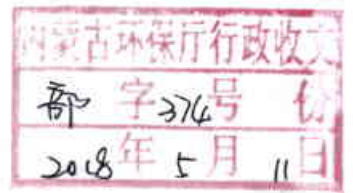 内蒙古环保厅行政收文
部字374号 份
2018年5月11日